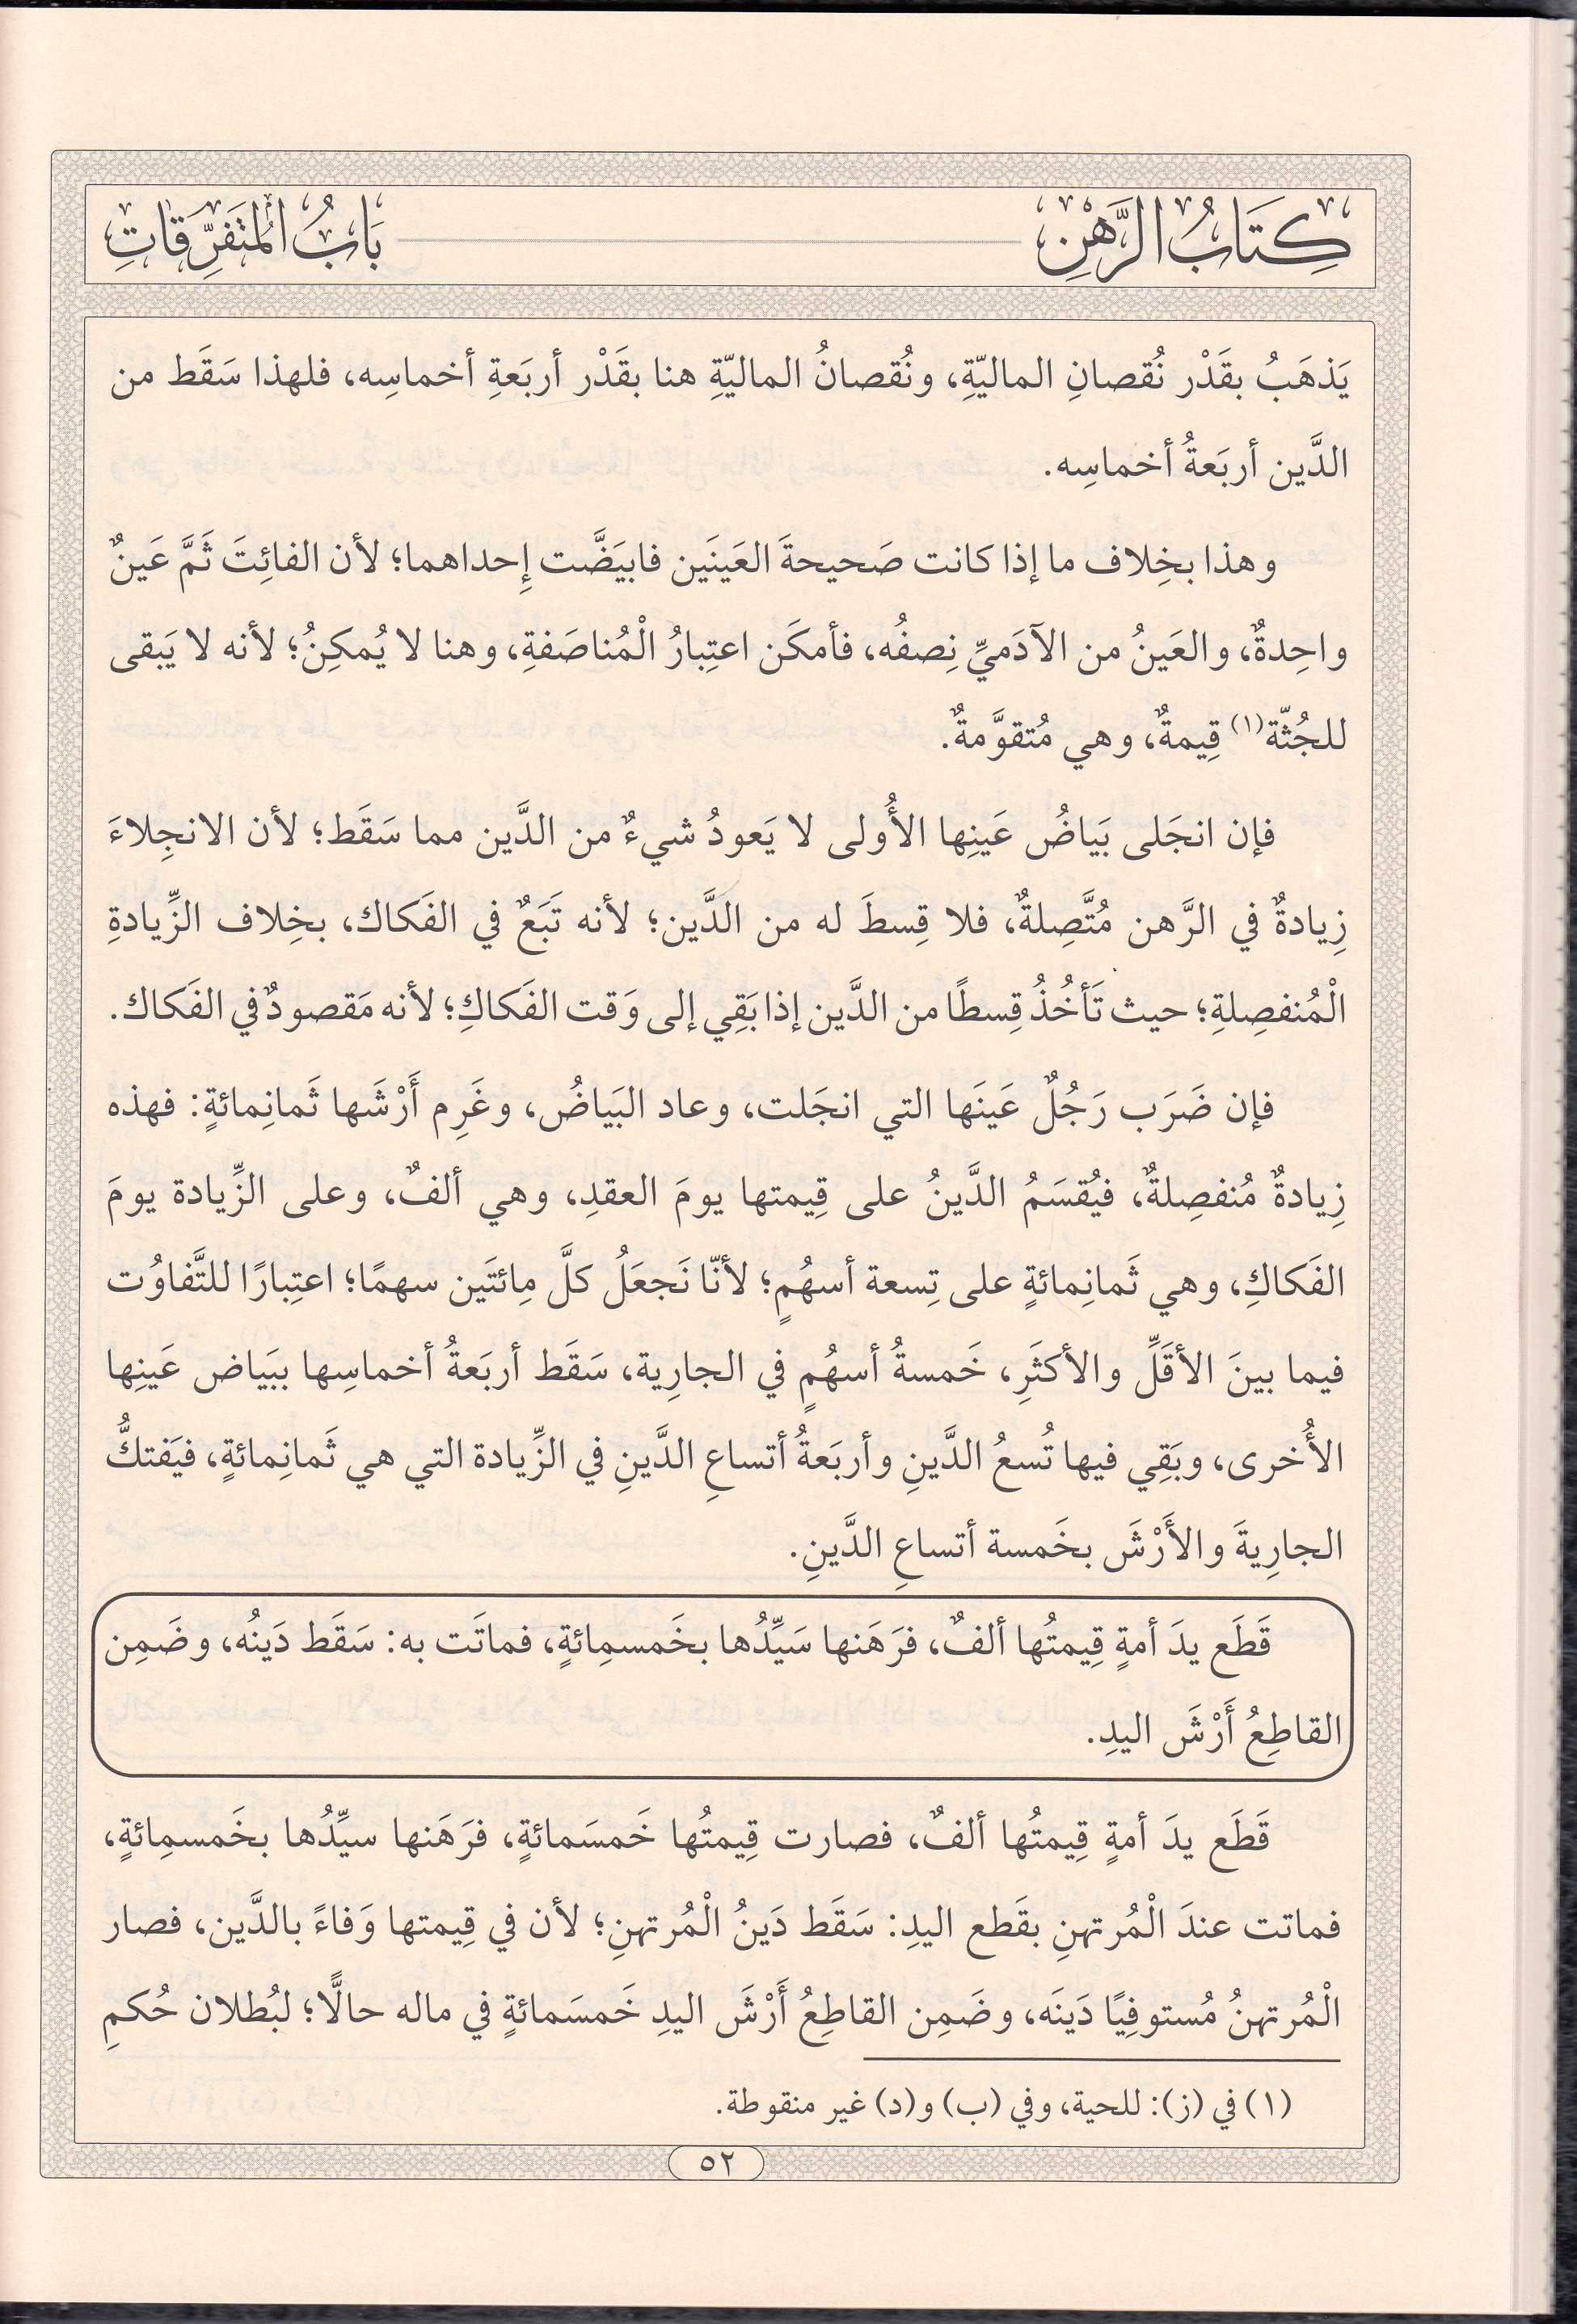 كِتَابُ الرَّهْنِ
بَابُ الْمُتَفَرِّقَاتِ
يَذهَبُ بقَدْر نُقصانِ الماليّةِ، ونُقصانُ الماليّةِ هنا بقَدْر أربَعةِ أخماسِه، فلهذا سَقَط من
الدَّين أربَعةُ أخماسِه.
وهذا بخِلاف ما إذا كانت صَحيحةَ العَينَين فابيَضَّت إِحداهما؛ لأن الفائِتَ ثَمَّ عَينٌ
واحِدةٌ، والعَينُ من الآدَميِّ نِصفُه، فأمكَن اعتِبارُ الْمُناصَفةِ، وهنا لا يُمكِنُ؛ لأنه لا يَبقى
للجُثّة(١) قِيمةٌ، وهي مُتقوَّمةٌ.
فإن انجَلى بَياضُ عَينِها الأُولى لا يَعودُ شيءٌ من الدَّين مما سَقَط؛ لأن الانجِلاءَ
زِيادةٌ في الرَّهن مُتَّصِلةٌ، فلا قِسطَ له من الدَّين؛ لأنه تَبَعٌ في الفَكاك، بخِلاف الزِّيادةِ
الْمُنفصِلةِ؛ حيث تَأخُذُ قِسطًا من الدَّين إذا بَقِي إلى وَقت الفَكاكِ؛ لأنه مَقصودٌ في الفَكاك.
فإن ضَرَب رَجُلٌ عَينَها التي انجَلت، وعاد البَياضُ، وغَرِم أَرْشَها ثَمانِمائةٍ: فهذه
زِيادةٌ مُنفصِلةٌ، فيُقسَمُ الدَّينُ على قِيمتها يومَ العقدِ، وهي ألفٌ، وعلى الزِّيادة يومَ
الفَكاكِ، وهي ثَمانِمائةٍ على تِسعة أسهُمٍ؛ لأنّا نَجعَلُ كلَّ مِائتَين سهمًا؛ اعتِبارًا للتَّفاوُت
فيما بينَ الأقَلِّ والأكثَرِ، خَمسةُ أسهُمٍ في الجارِية، سَقَط أربَعةُ أخماسِها ببَياض عَينِها
الأُخرى، وبَقِي فيها تُسعُ الدَّينِ وأربَعةُ أتساعِ الدَّينِ في الزِّيادة التي هي ثَمانِمائةٍ، فيَفتكُّ
الجارِيةَ والأَرْشَ بخَمسة أتساعِ الدَّينِ.
قَطَع يدَ أمةٍ قِيمتُها ألفٌ، فرَهَنها سَيِّدُها بخَمسمِائةٍ، فماتَت به: سَقَط دَينُه، وضَمِن
القاطِعُ أَرْشَ اليدِ.
قَطَع يدَ أمةٍ قِيمتُها ألفٌ، فصارت قِيمتُها خَمسَمائةٍ، فرَهَنها سيِّدُها بخَمسمِائةٍ،
فماتت عندَ الْمُرتهنِ بقَطع اليدِ: سَقَط دَينُ الْمُرتهنِ؛ لأن في قِيمتها وَفاءً بالدَّين، فصار
الْمُرتهنُ مُستوفِيًا دَينَه، وضَمِن القاطِعُ أَرْشَ اليدِ خَمسَمائةٍ في ماله حالًّا؛ لبُطلان حُكمِ
(١) في (ز): للحية، وفي (ب) و(د) غير منقوطة.
٥٢